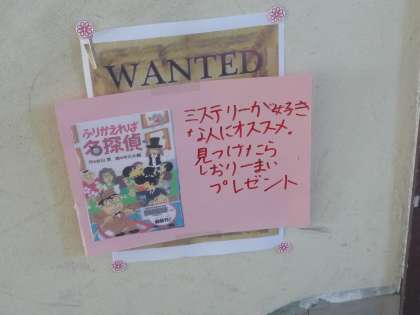 WANTED
ミステリーが好き
な人にオススメ。
見つけたら
しおり一まい
プレゼント
ふりかえれば
名探偵